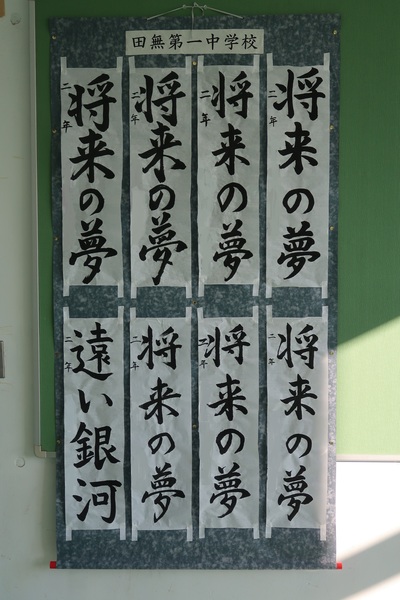 田無第一中学校
将来の夢
二年
将来の夢
二年
将来の夢
二年
将来の夢
二年
将来の夢
二年
将来の夢
二年
将来の夢
二年
遠い銀河
二年